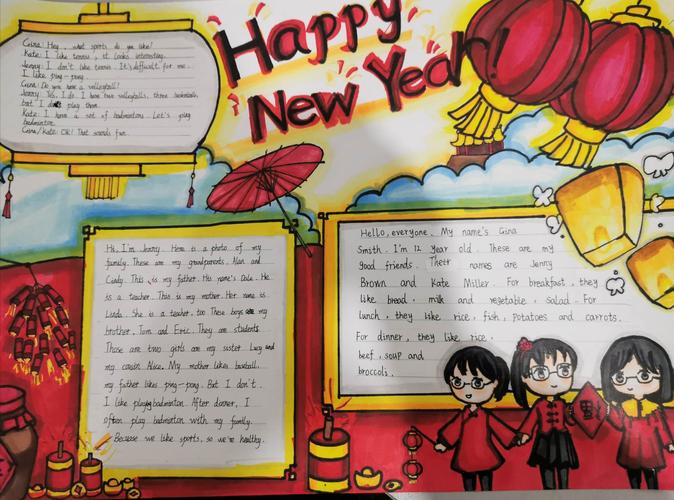 Happy
New Year!
Gina: Hey, what sports do you like?
Kate: I like tennis, it looks interesting.
Jenny: I don't like tennis. It's difficult for me.
I like ping-pong.
Gina: Do you have a volleyball?
Jenny: Yes, I do. I have two volleyballs, three baseballs,
but I don't play them.
Kate: I have a set of badmintons. Let's going
badminton.
Gina/Kate: OK! That sounds fun.
Hi, I'm Jenny. Here is a photo of my
family. These are my grandparents, Alan and
Cindy. This is my father. His name's Dale. He
is a teacher. This is my mother. Her name is
Linda. She is a teacher, too. These boys are my
brother, Tom and Eric. They are students.
Those are two girls are my sister Lucy and
my cousin Alice. My mother likes baseball,
my father likes ping-pong. But I don't.
I like play badminton. After dinner, I
often play badminton with my family.
Because we like sports, so we're healthy.
Hello, everyone. My name's Gina
Smith. I'm 12 year old. These are my
good friends. Their names are Jenny
Brown and Kate Miller. For breakfast, they
like bread, milk and vegetable, salad. For
lunch, they like rice, fish, potatoes and carrots.
For dinner, they like rice,
beef, soup and
broccoli.
福